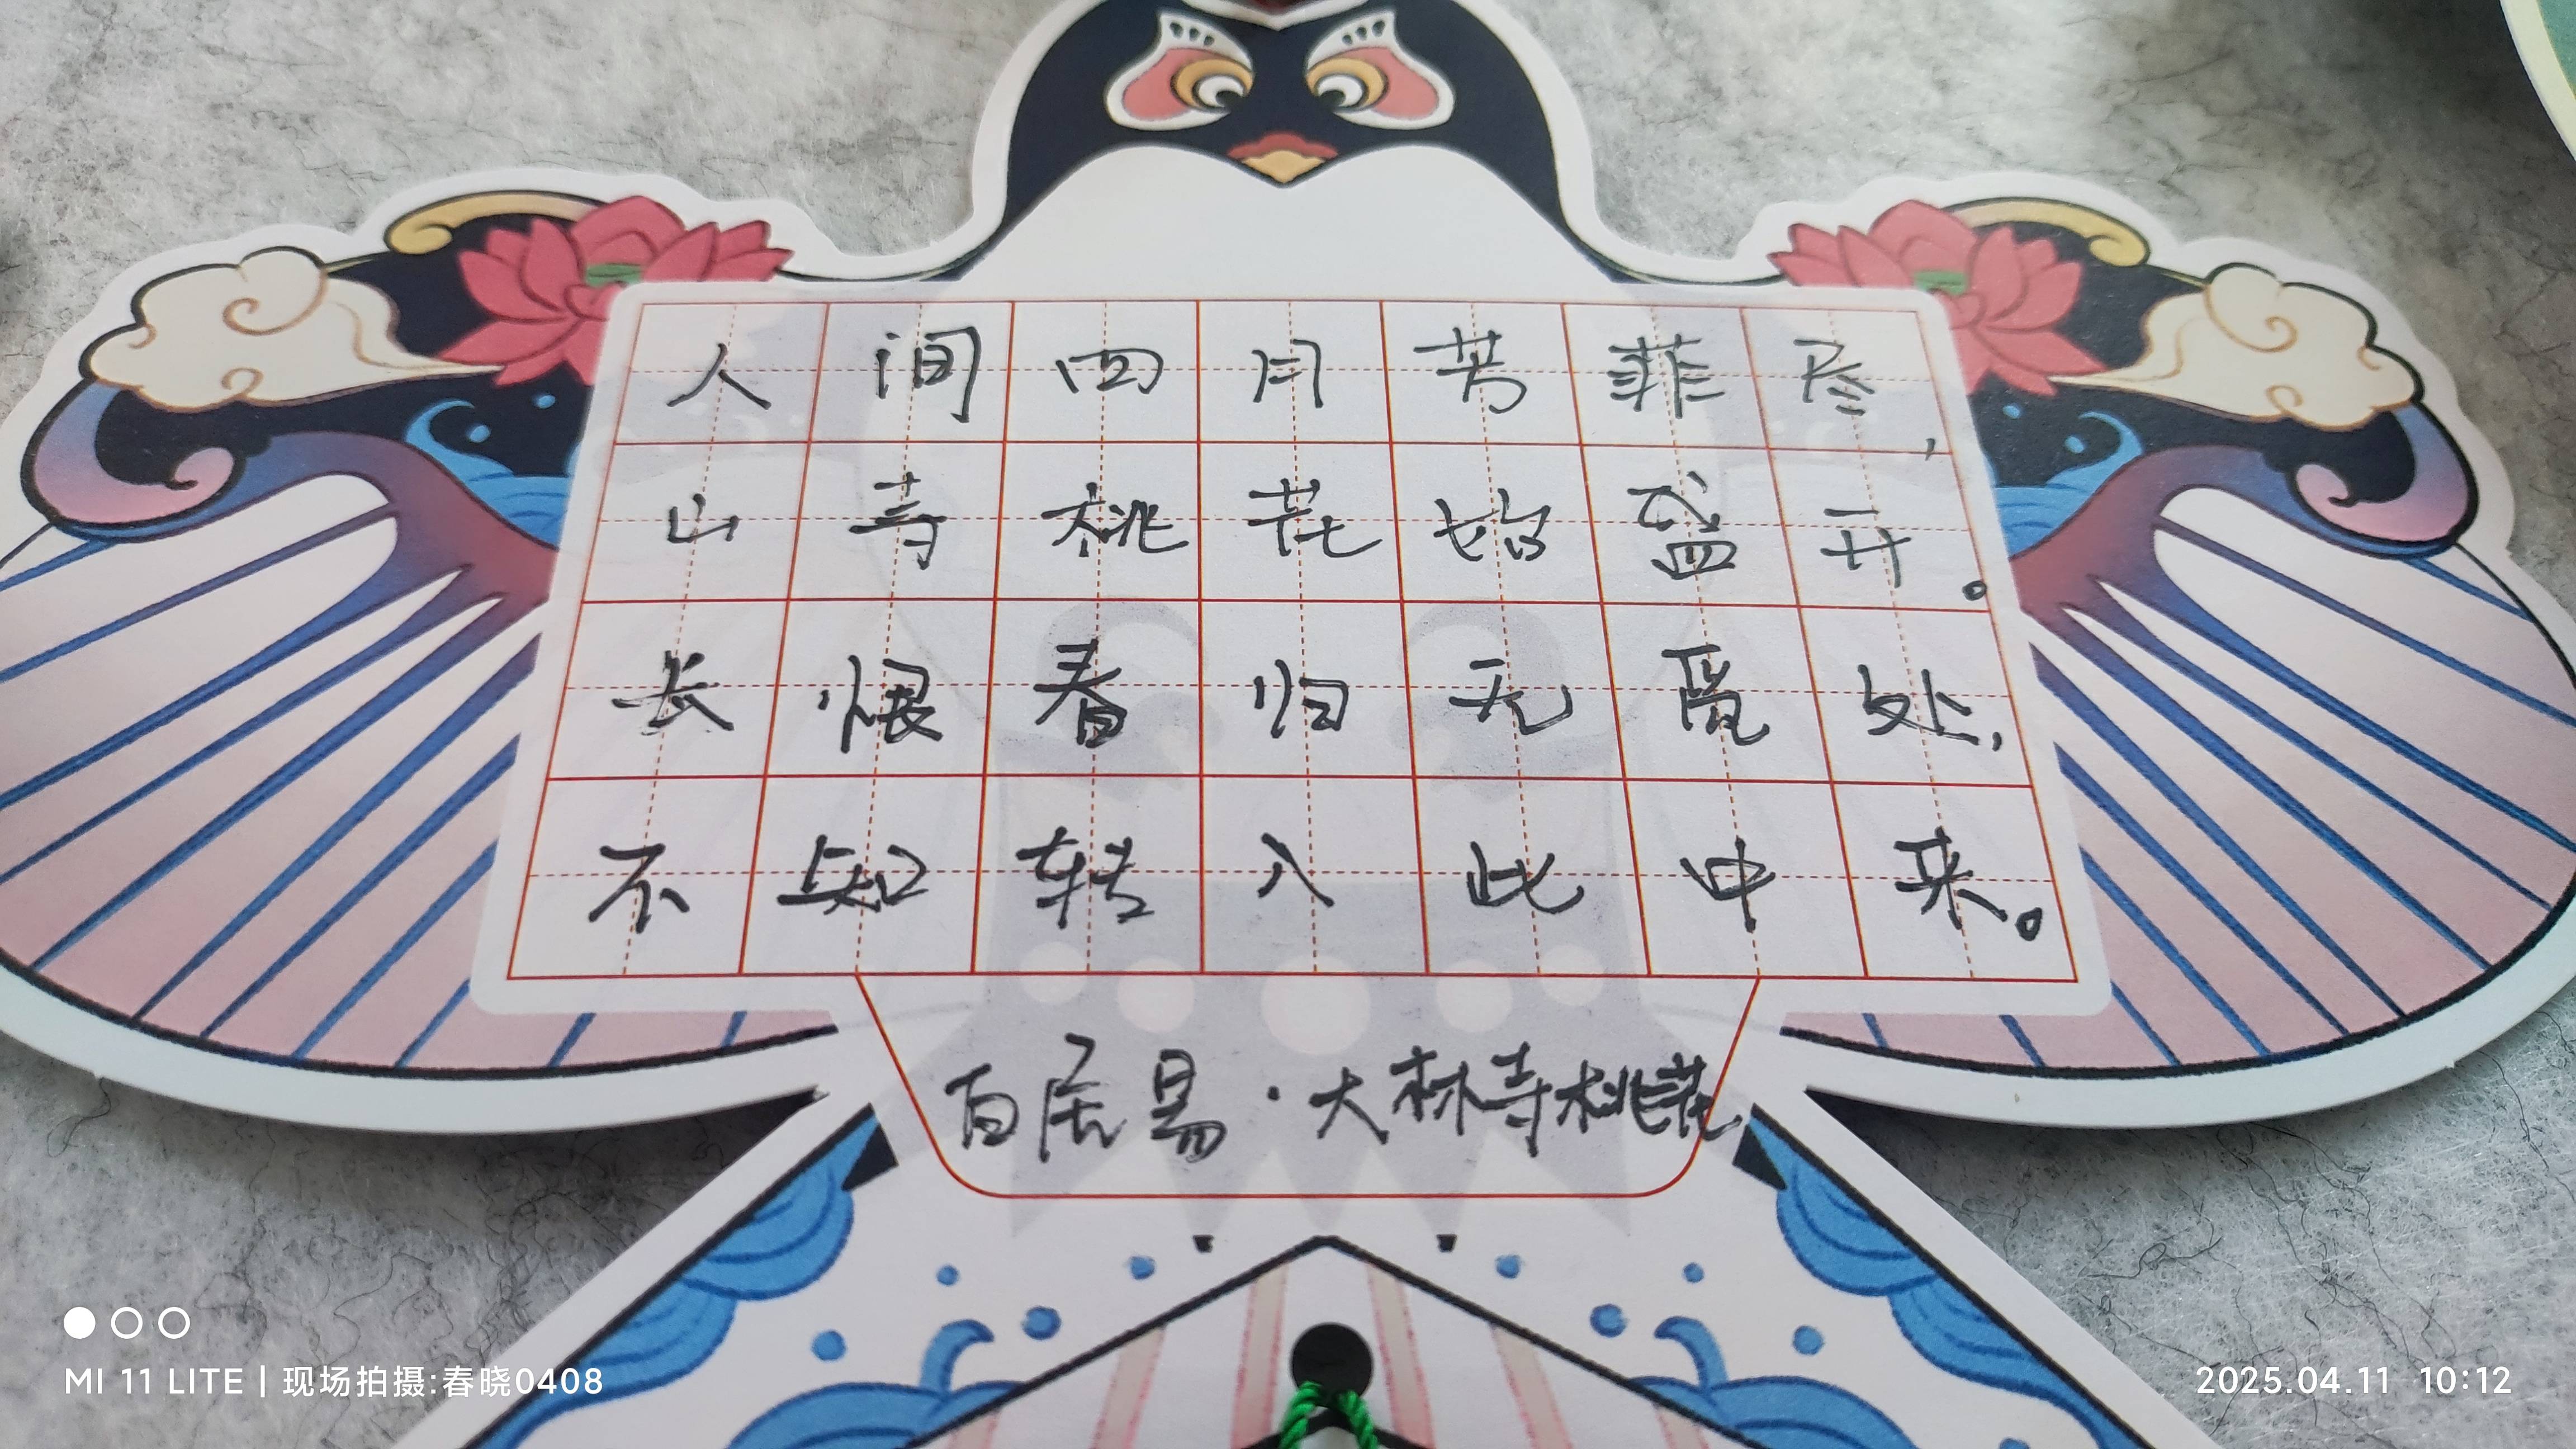 人间四月芳菲尽,
山寺桃花始盛开。
长恨春归无觅处,
不知转入此中来。
白居易·大林寺桃花
MI 11 LITE | 现场拍摄:春晓0408
2025.04.11 10:12